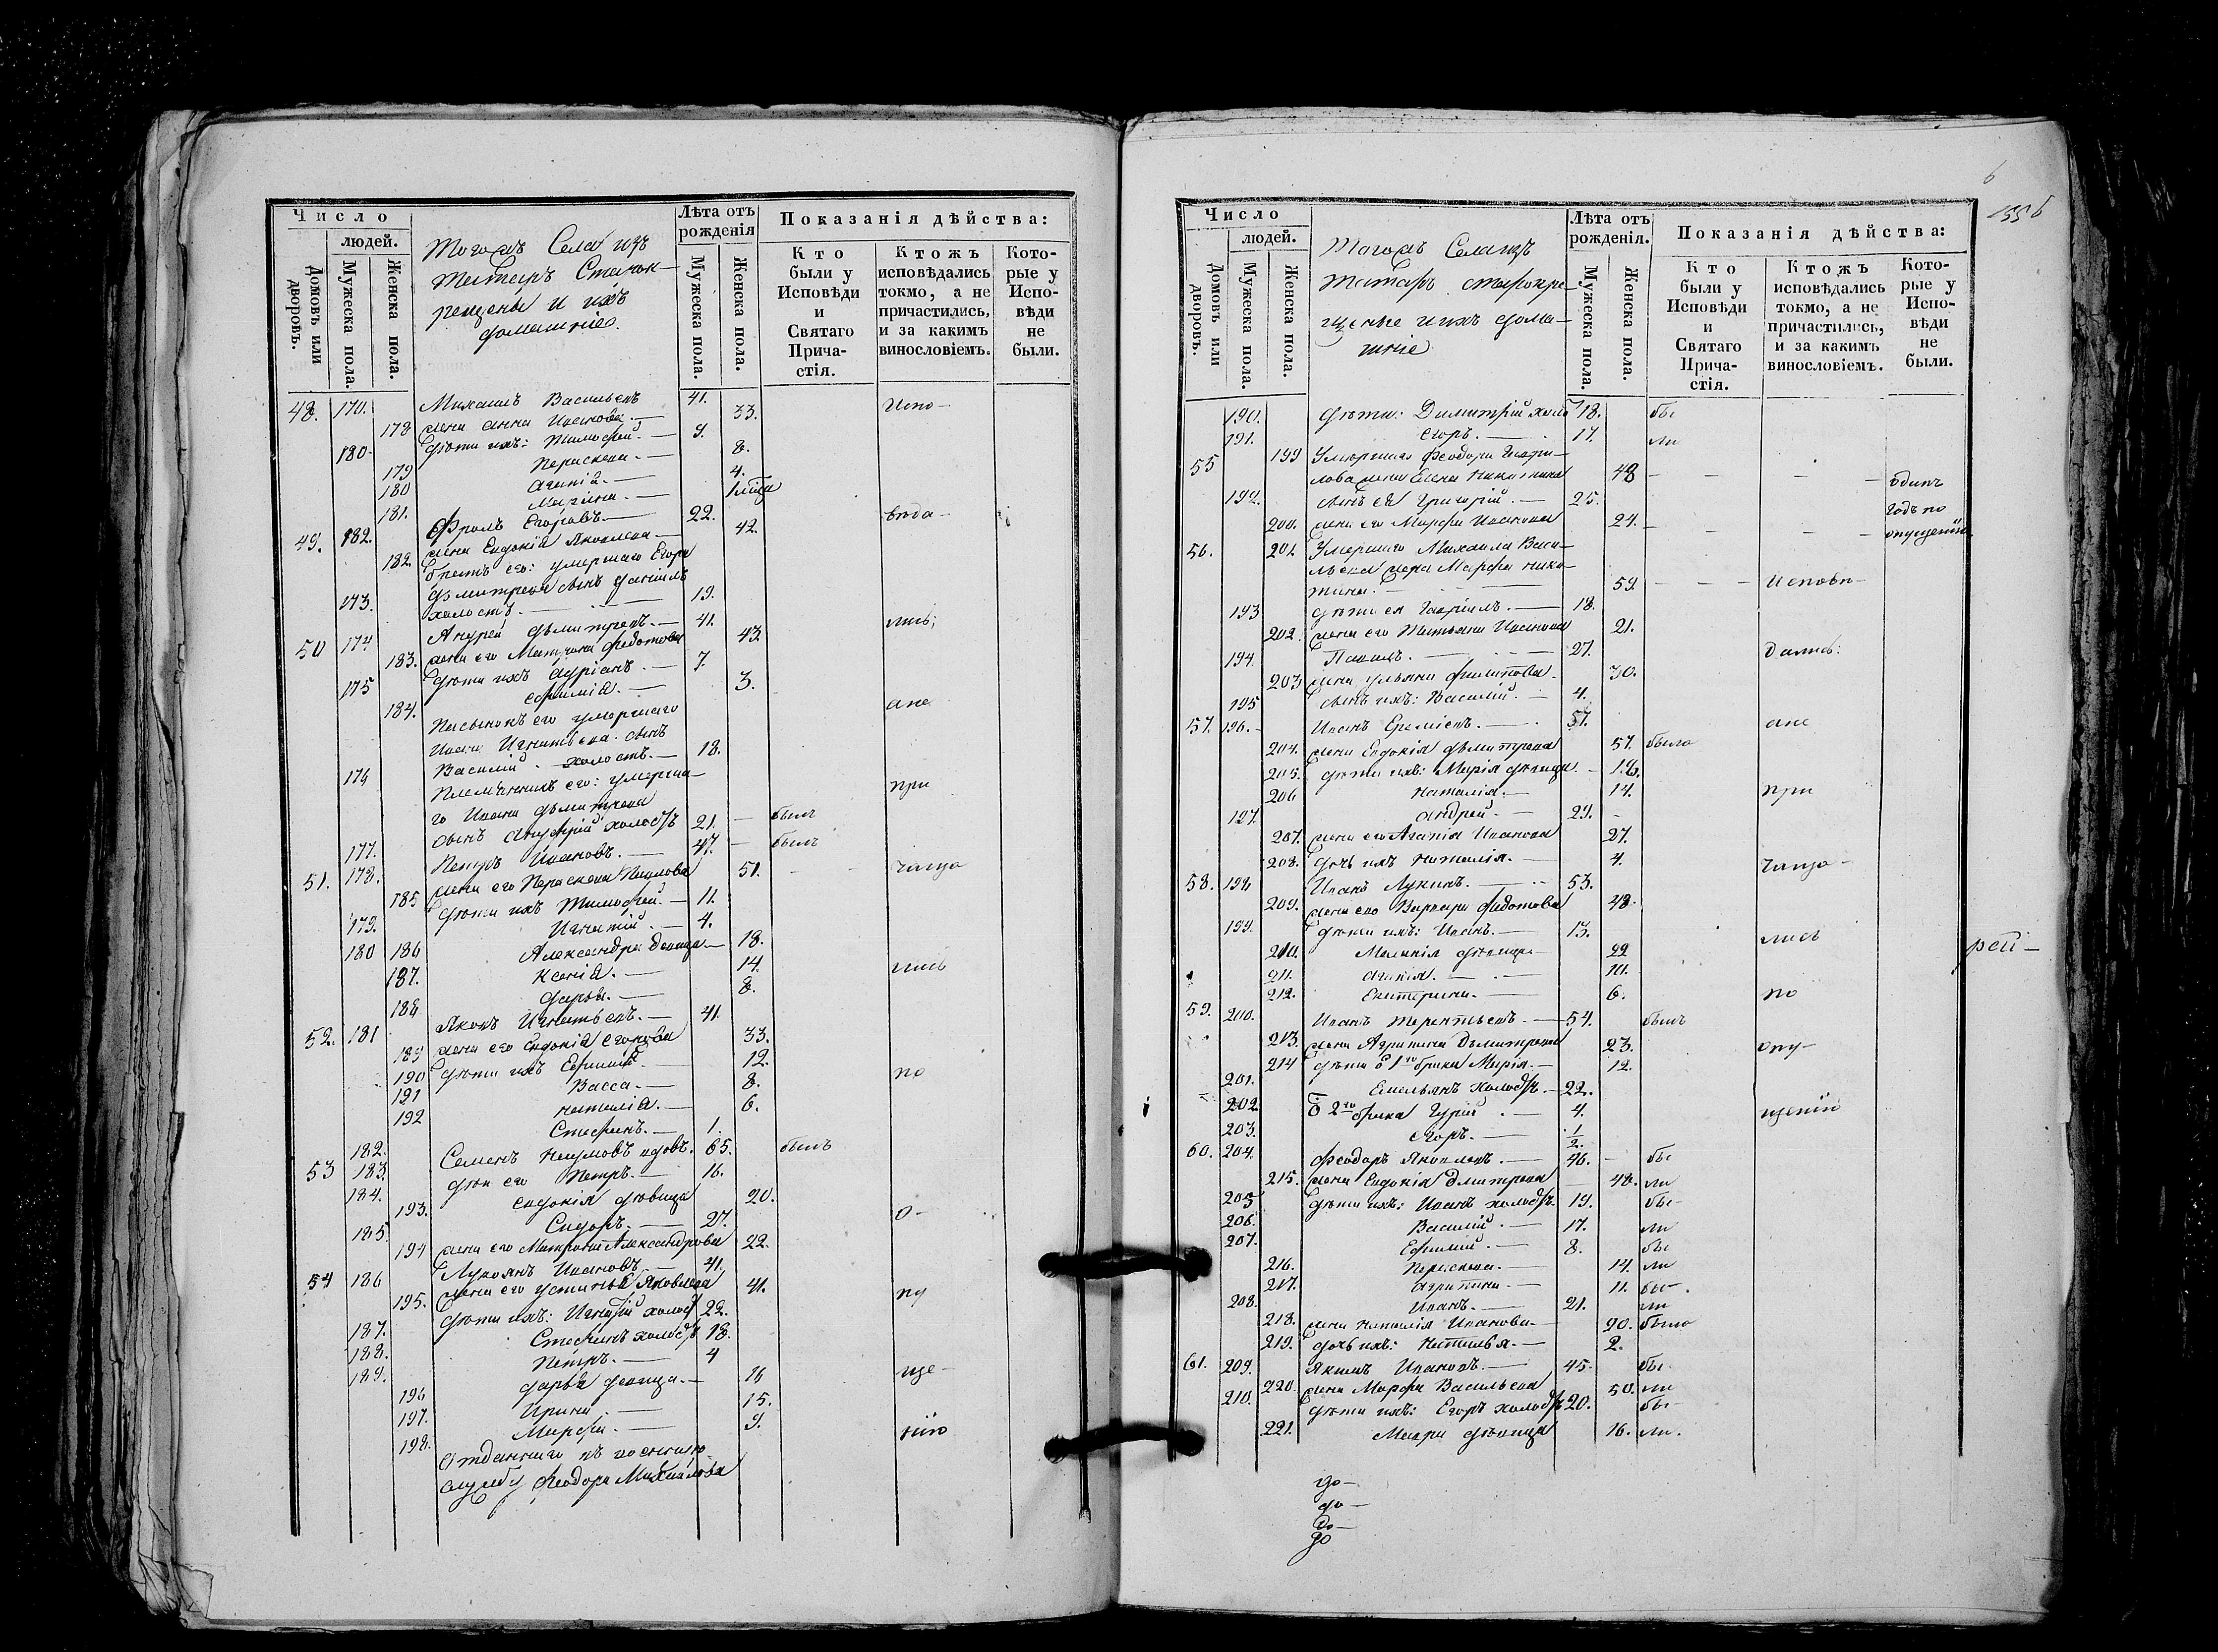 Число
людей.
Домовъ или дворовъ.
Мужеска пола.
Женска пола.
Тогожъ Села изъ
татаръ Старок-
рещены и ихъ
домашніе.
Лѣта отъ рожденія
Мужеска пола.
Женска пола.
Показанія дѣйства:
Кто были у Исповѣди и Святаго Прича- стія.
Ктожъ исповѣдались токмо, а не причастились, и за какимъ винословіемъ.
Кото- рые у Испо- вѣди не были.
48. 170. Михаилъ Васильевъ 41. Испо-
178 жена Анна Иванова. 33.
180 дѣти ихъ: Тимофей. 9.
179 Параскева. 8.
180 Агапія. 4.
181. 1 мѣся
49. 182. Фролъ Егоровъ. 22. вѣда-
182. жена Евдокія Яковлева 42.
братъ его: умершаго Егора
173. Дьмитрева сынъ Даніилъ
холостъ. 19.
50 174 Андрей Дьмитревъ. 41. лись;
183. жена его Матрона Федотова 43.
175 дѣти ихъ Адріанъ. 7.
184. Ефимія. 3.
Пасынокъ его умершаго ане
Ивана Игнатьева сынъ
176 Василій холостъ. 18.
Племянникъ его: умерша-
го Ивана Дьмитрева при
177. сынъ Андрей холостъ 21. былъ
51. 178. Петръ Ивановъ. 47. былъ
185 жена его Параскева Наумова 51. чаща
179. дѣти ихъ Тимофей. 11.
180 Игнатій. 4.
186 Александра девица 18.
187. Ксенія. 14. лись
188 Дарья. 8.
52. 181 Яковъ Игнатьевъ. 41.
189 жена его Евдокія Егорова 33.
190 дѣти ихъ Ефимія. 12.
191 Васса. 8. по
192 Наталія. 6.
182. Стефанъ. 1.
53 183. Семенъ Наумовъ вдовъ. 65. былъ
184. дѣти его Петръ. 16.
193. Евдокія дѣвица 20.
185. Сидоръ. 27. о-
194 жена его Матрона Александрова 22.
54 186 Лукоянъ Ивановъ 41.
195. жена его Устинья Яковлева 41. пу
187. дѣти ихъ: Игнатій холост 22.
188. Стефанъ холостъ 18.
189. Петръ. 4
196 Дарья девица. 16 ще-
197. Ирина. 15.
198. Марфа. 9. нію
Отданнаго въ военную
службу Феодора Михайлова
6
1556
Число
людей.
Домовъ или дворовъ.
Мужеска пола.
Женска пола.
Тогожъ Села изъ
татаръ старокре-
щеные и ихъ дома-
шніе
Лѣта отъ рожденія.
Мужеска пола.
Женска пола.
Показанія дѣйства:
Кто были у Исповѣди и Святаго Прича- стія.
Ктожъ исповѣдались токмо, а не причастились, и за какимъ винословіемъ.
Кото- рые у Испо- вѣди не были.
190. дѣти: Димитрій холо 18. бы
191. Егоръ. 17. ли
55 199 Умершаго Феодора Гаври-
лова жена Елена Никитина 48 одинъ
192. сынъ ея Григорій. 25. годъ по
200. жена его Марфа Иванова 24. опущенію
56. 201 Умершаго Михаила Васи-
льева жена Марфа Ники-
тина. 59. Исповѣ-
193 дѣти ея Гавріилъ. 18.
202. жена его Татьяна Иванова 21.
194. Павелъ. 27. дались:
203 жена Ульяна Филипова 30.
195 сынъ ихъ: Василій. 4.
57. 196. Иванъ Еремѣевъ. 57. ане
204. жена Евдокія Дьмитрева 57. была
205. дѣти ихъ: Марія дѣвица 18.
206 Наталія. 14. при
197. Андрей. 29.
207. жена его Агапія Иванова 27.
208. дочь ихъ Наталія. 4. чаща-
58. 198 Иванъ Лукинъ. 53.
209. жена его Варвара Федотова 48.
199. дѣти ихъ: Иванъ. 13.
210. Маланія дѣвица 22 лись
211. Агапія. 10.
212. Екатерина. 6. по
59. 200. Иванъ Терентьевъ. 54. былъ
213. жена Агрипина Дьмитрева 23. опу-
214 дѣти о 1го брака Марія. 12.
201. Емельянъ холостъ. 22.
202. о 2го брака Гурій 4. щенію
203. Егоръ. 1/2.
60. 204. Феодоръ Яковлевъ. 46. бы
215. жена Евдокія Дмитрева 48. ли
205 дѣти ихъ: Иванъ холостъ. 19. бы-
206. Василій. 17. ли
207. Ефимій. 8. бы
216. Параскева. 14. ли
217. Агрипина 11. бы-
208. Иванъ. 21. ли
218. жена Наталія Иванова 20. была
219. дочь ихъ: Наталья. 2.
61. 209. Якимъ Ивановъ. 45. бы
220. жена Марфа Васильева 50. ли
210. дѣти ихъ: Егоръ холостъ 20. бы-
221. Мавра дѣвица 16. ли.
рей-
до-
до-
до-
до